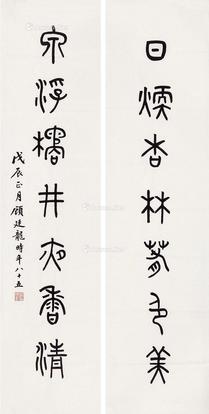 日煖杏林春色美
泉浮橘井夜香清
戊辰正月顧廷龍時年八十五